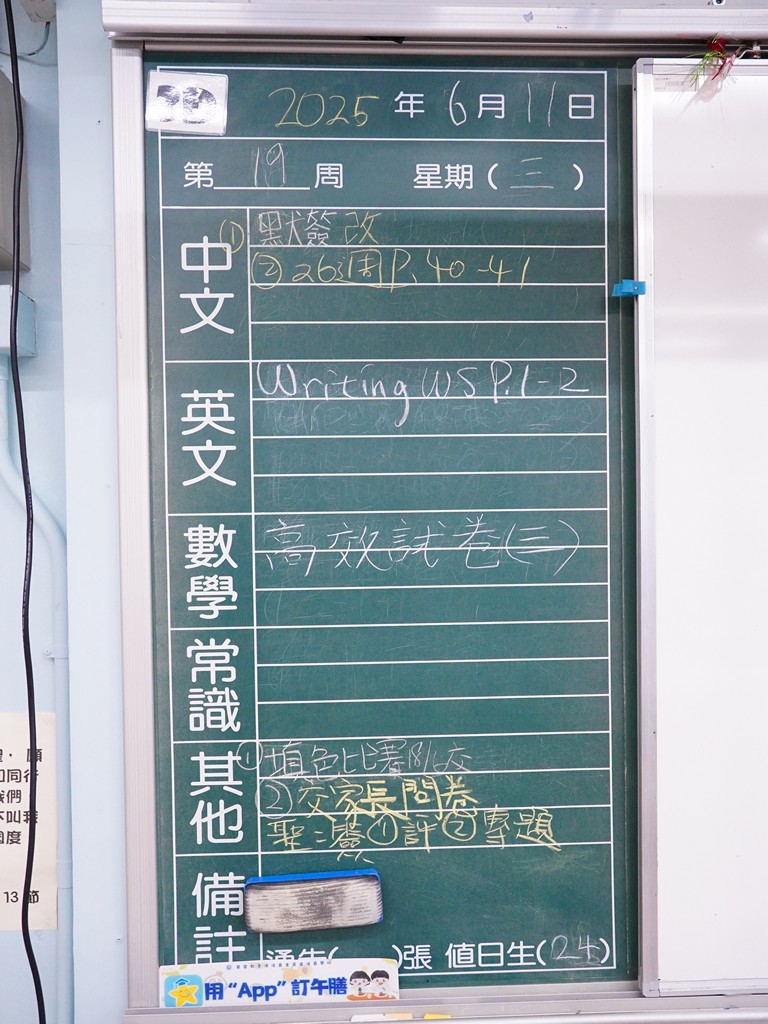 2025年6月11日
第19周 星期(三)
中文
① 默簽改
② 26週P.40-41
英文
Writing WS P.1-2
數學
高效試卷(三)
常識
其他
① 填色比賽8/6交
② 交家長問卷
聖:簽①評②專題
備註
通告( )張 值日生(24)
用“App”訂午膳
同行
我們
不叫我
13 節